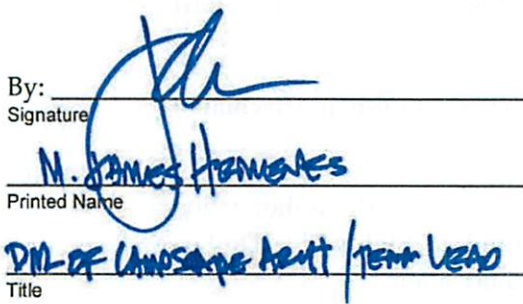 By:
Signature
M. JAMES
Printed Name
OF LANDSCAPE ARCH / TEAM LEAD
Title